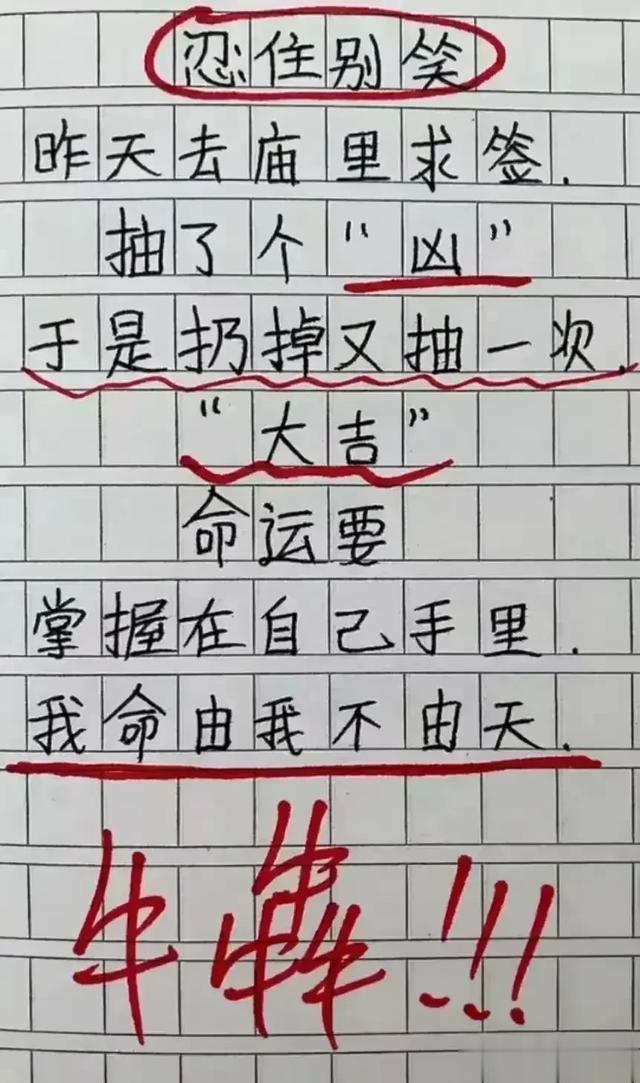 忍住别笑
昨天去庙里求签.
抽了个“凶”
于是扔掉又抽一次.
“大吉”
命运要
掌握在自己手里.
我命由我不由天.
牛犇!!!